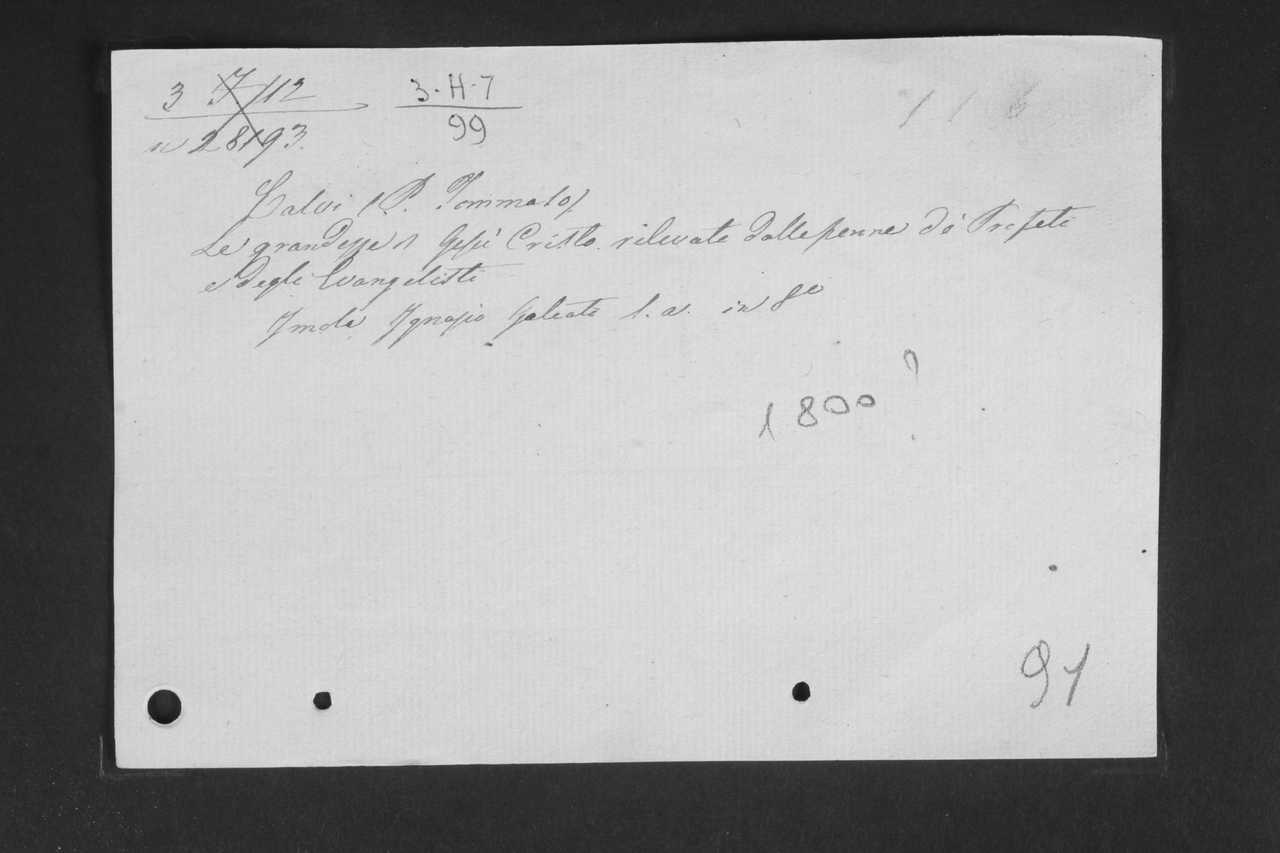 3 J/12
3-H-7
99
n 28193.
Calvi (P. Tommaso)
Le grandezze di Gesù Cristo rilevate dalle penne de' Profeti
e degli Evangelisti
Imola Ignazio Galeati s.a. in 8°
1800?
91